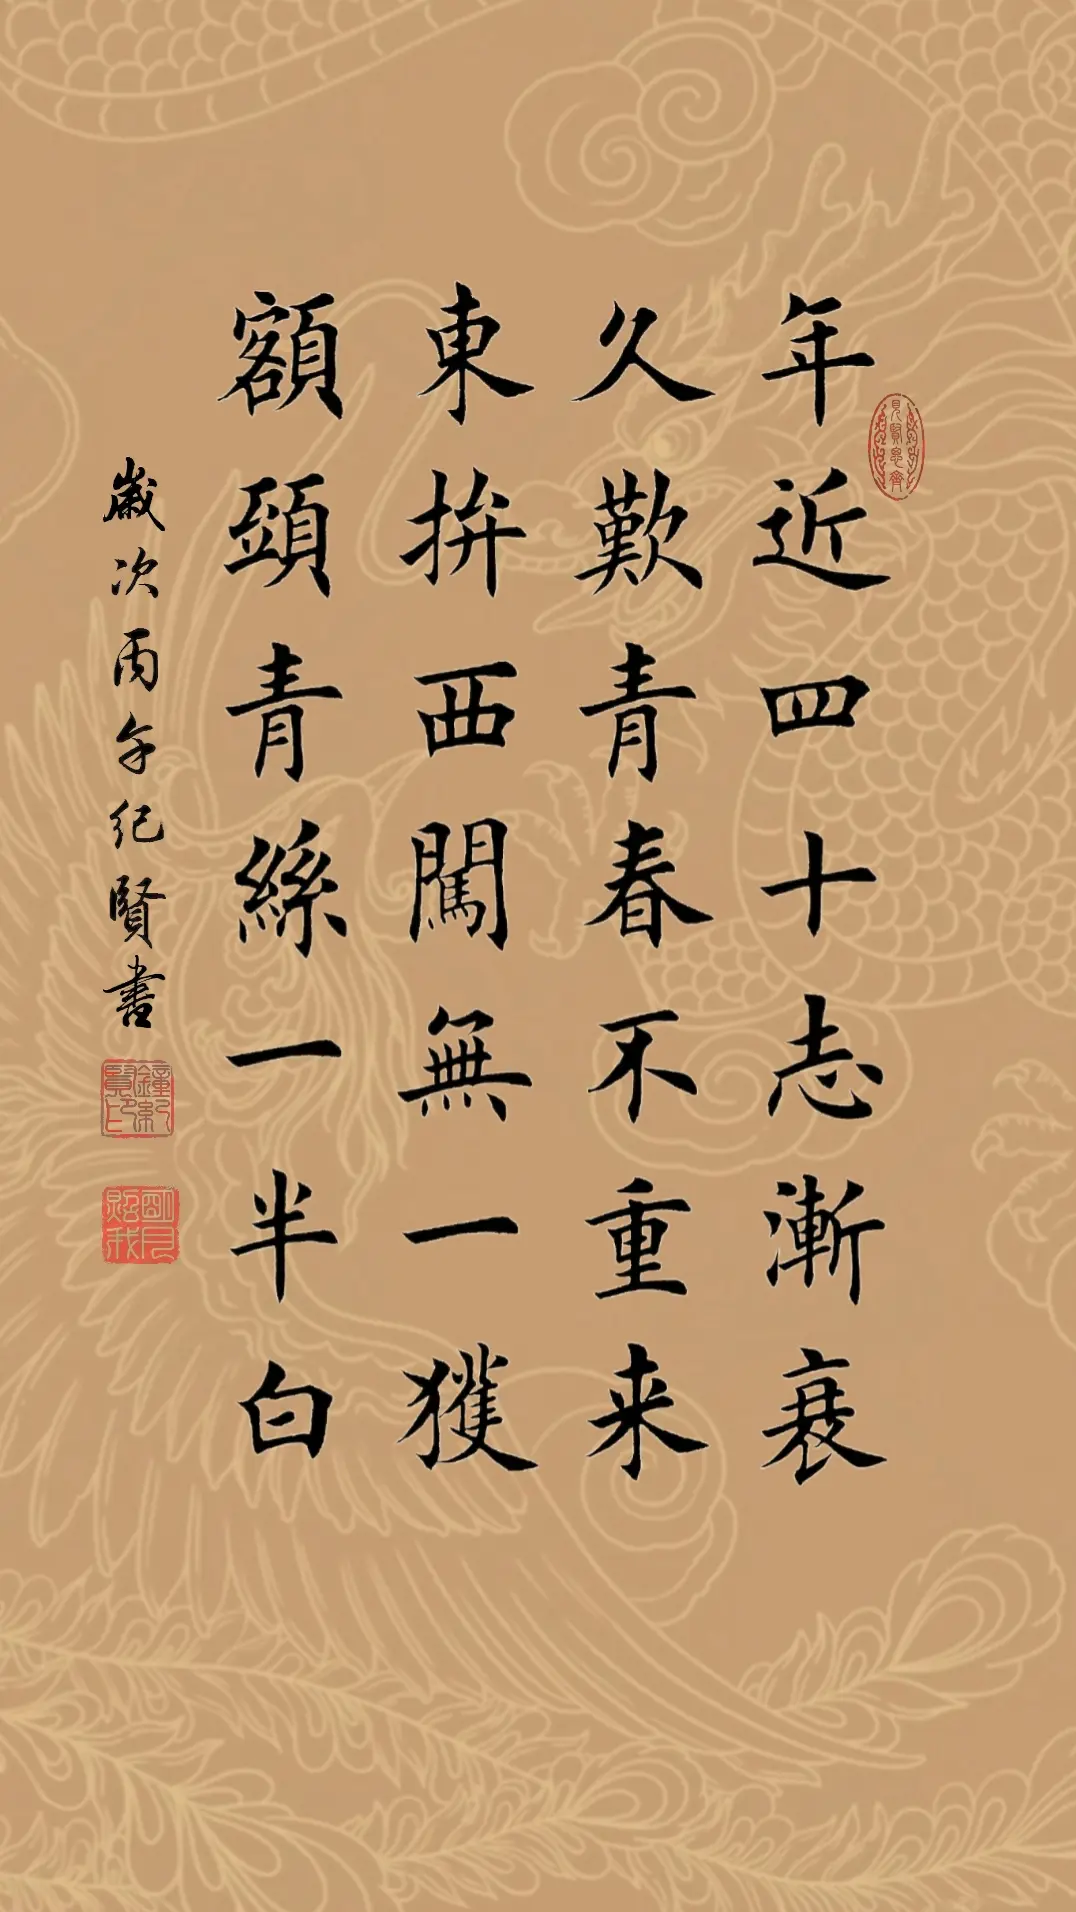 年近四十志漸衰
久歎青春不重来
東拚西闖無一獲
額頭青絲一半白
歲次丙午纪賢書
見賢思齊
鐘紀賢印